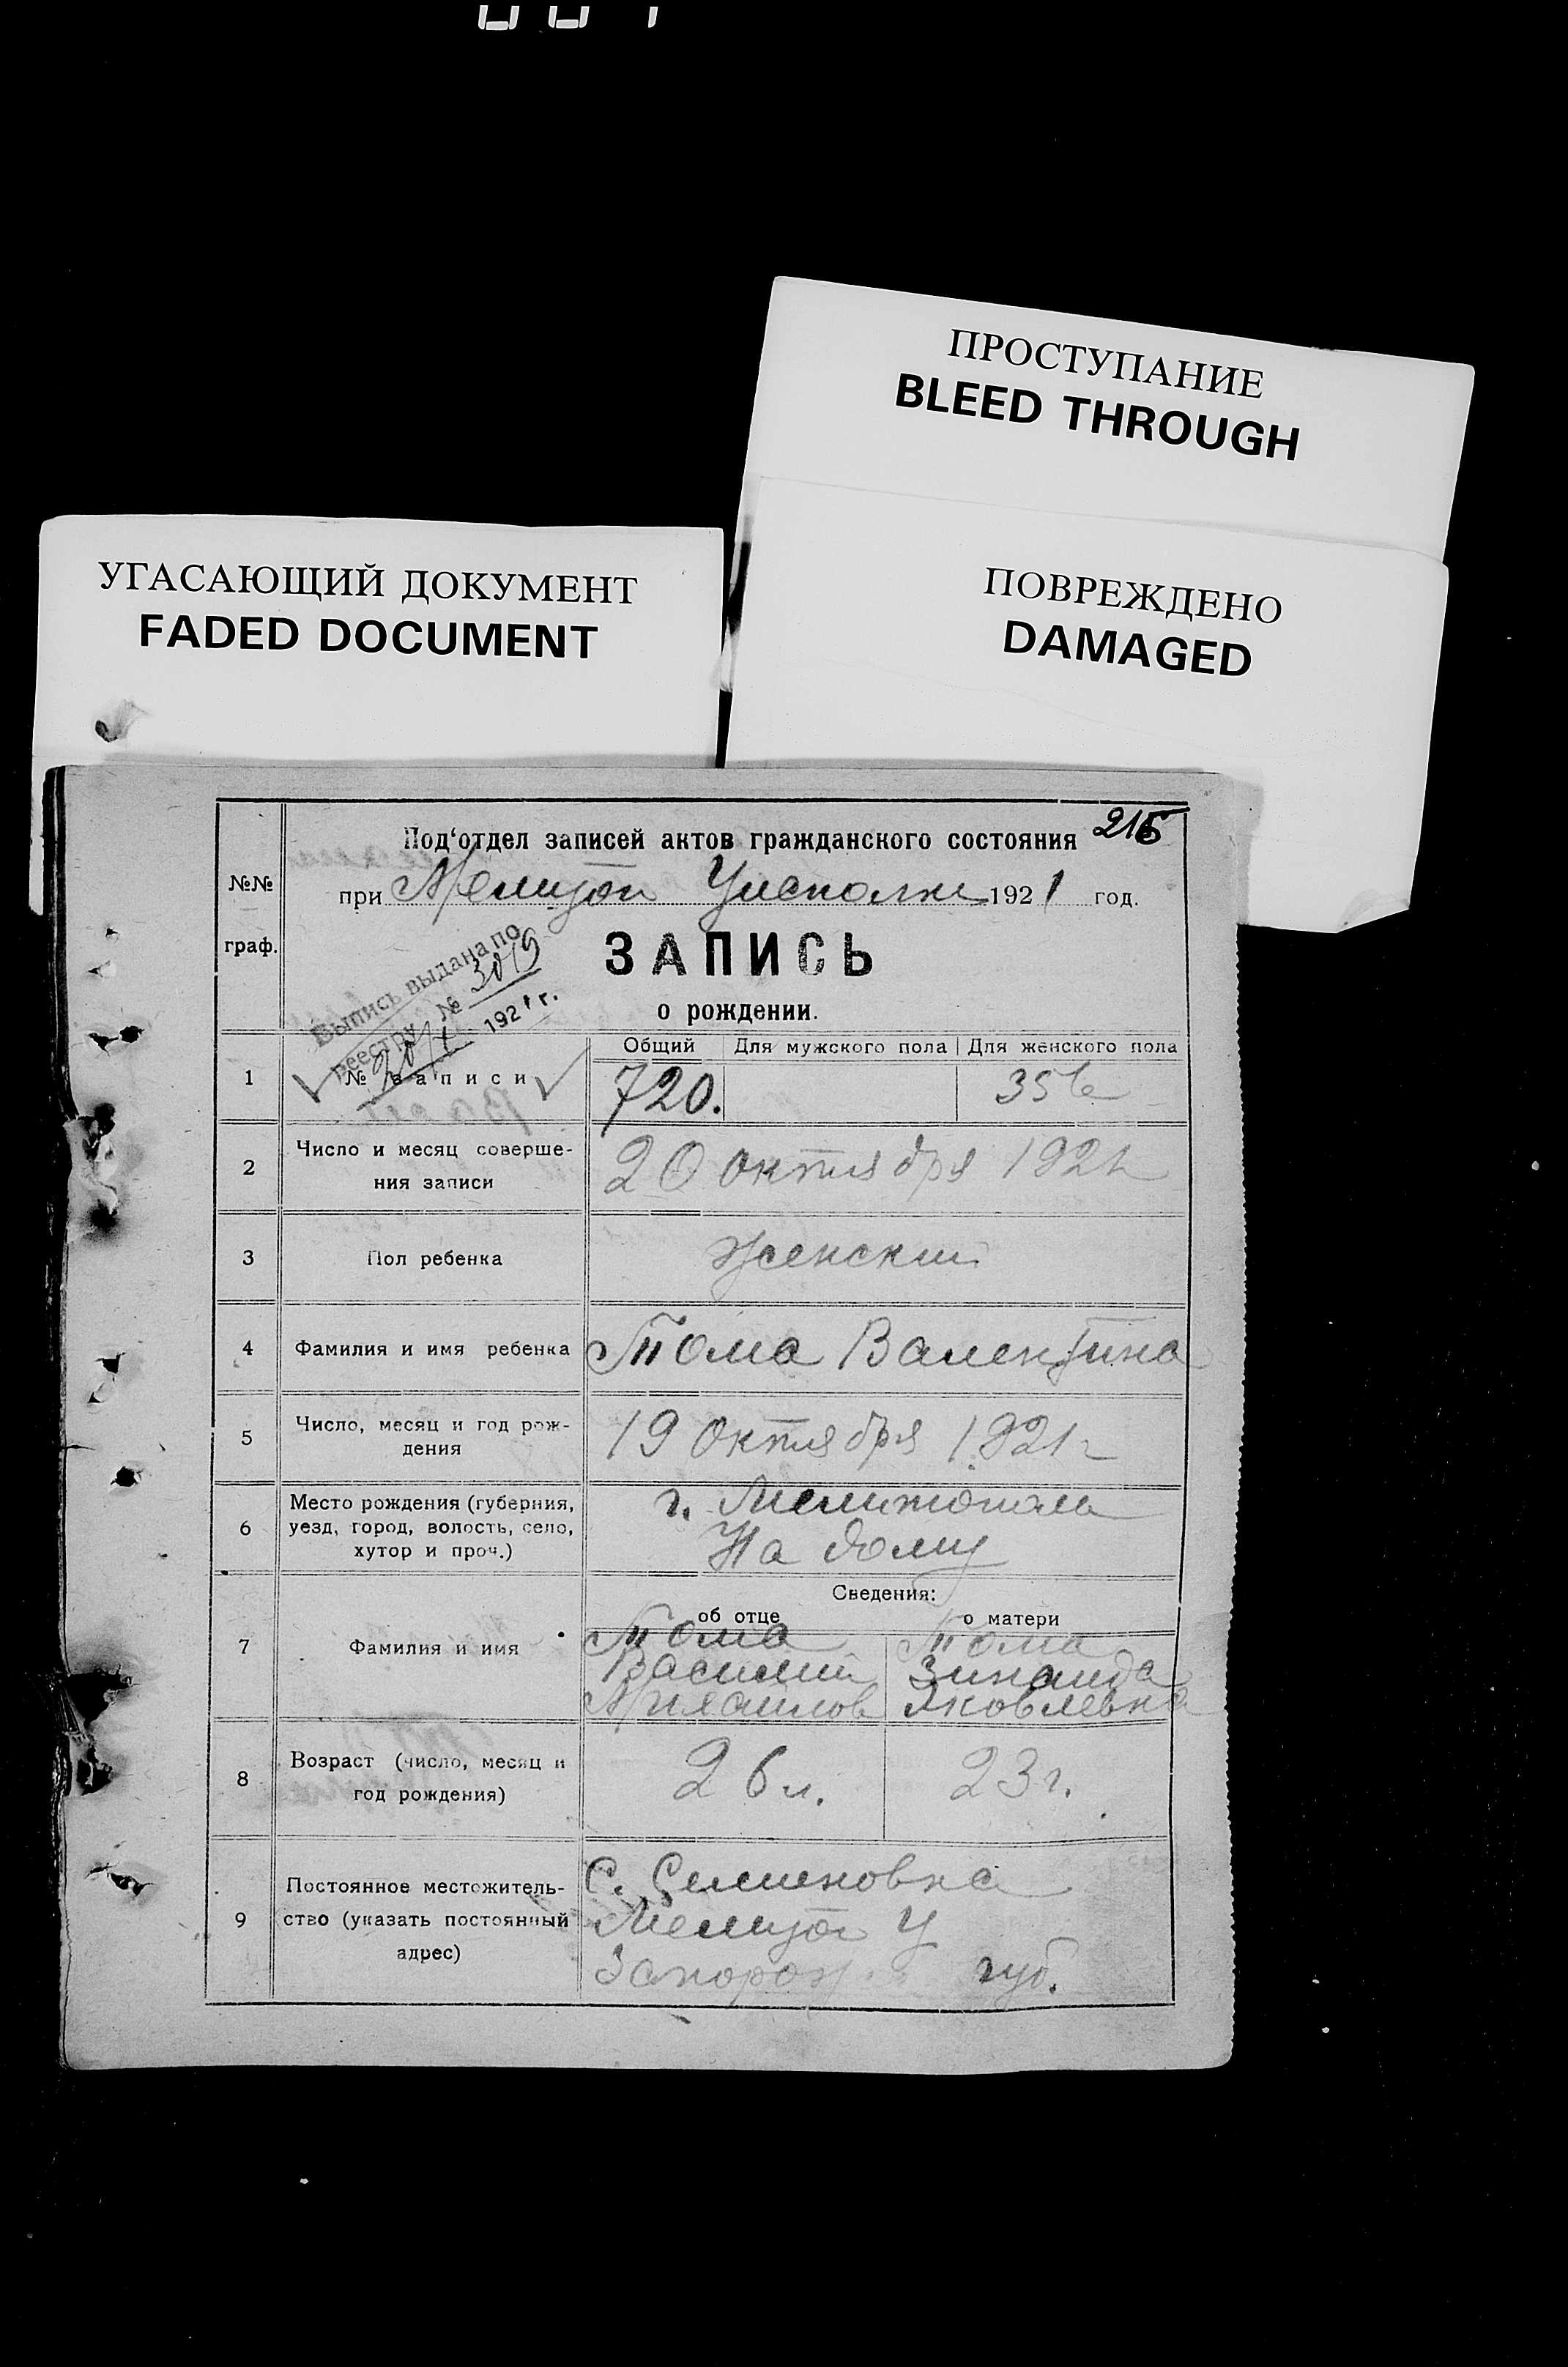 ПРОСТУПАНИЕ
BLEED THROUGH
УГАСАЮЩИЙ ДОКУМЕНТ
FADED DOCUMENT
ПОВРЕЖДЕНО
DAMAGED
216
Под‘отдел записей актов гражданского состояния
№№
граф.
при Мелитоп Уисполк 1921 год.
ЗАПИСЬ
о рождении.
Выпись выдана по
реестру № 3019
1921 г.
Общий Для мужского пола Для женского пола
1 № записи 720.
2 Число и месяц соверше-
ния записи
20 октября 1921
3 Пол ребенка Женский
4 Фамилия и имя ребенка Тома Валентина
5 Число, месяц и год рож-
дения
19 октября 1921г
6 Место рождения (губерния,
уезд, город, волость, село,
хутор и проч.)
г. Мелитополь
На дому
Сведения:
об отце о матери
7 Фамилия и имя
Тома Тома
Василий Зинаида
Михаилов Яковлевна
8 Возраст (число, месяц и
год рождения)
26 л. 23 г.
9 Постоянное местожитель-
ство (указать постоянный
адрес)
С. Семеновка
Мелитоп У
Запорож губ.